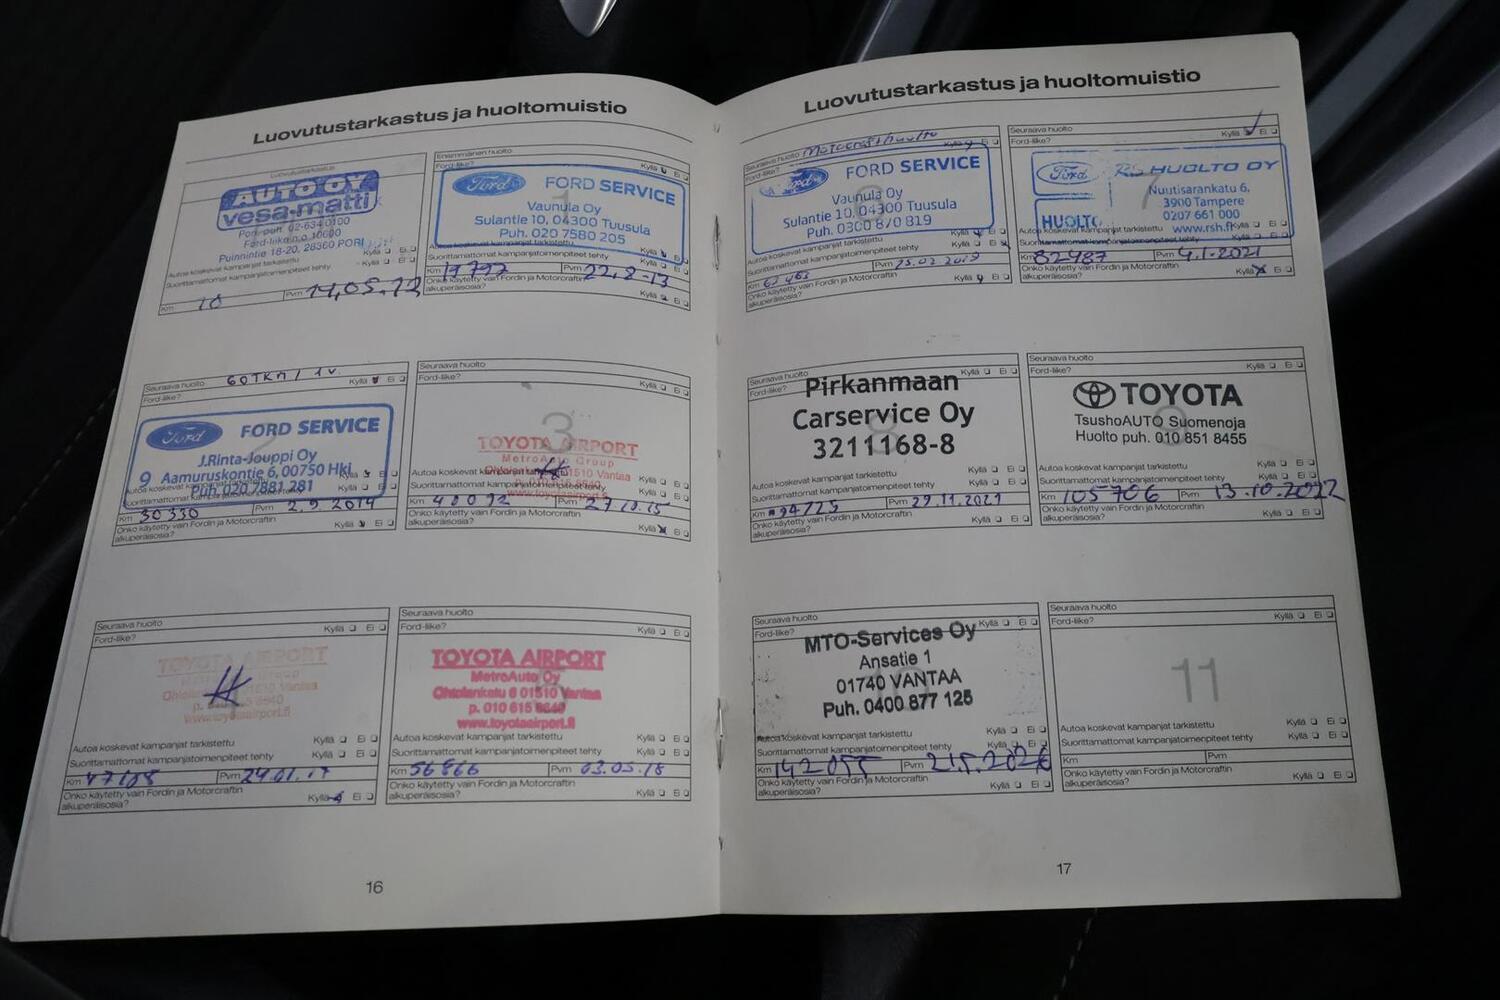 Luovutustarkastus ja huoltomuistio
Luovutustarkastus
AUTO OY
vesa-matti
Pori puh. 02-634 0100
Ford-liike n:o 10600
Puinnintie 18-20, 28360 PORI
Autoa koskevat kampanjat tarkistettu Kyllä Ei
Suorittamattomat kampanjatoimenpiteet tehty Kyllä Ei
Km 10 Pvm 14.05.12
Ensimmäinen huolto
Ford-liike? Kyllä Ei
1
Ford FORD SERVICE
Vaunula Oy
Sulantie 10, 04300 Tuusula
Puh. 020 7580 205
Autoa koskevat kampanjat tarkistettu
Suorittamattomat kampanjatoimenpiteet tehty Kyllä Ei
Km 19792 Pvm 22.8-13
Onko käytetty vain Fordin ja Motorcraftin
alkuperäisosia? Kyllä Ei
Seuraava huolto 60TKM / 1v.
Ford-liike? Kyllä Ei
2
Ford FORD SERVICE
J.Rinta-Jouppi Oy
9 Aamuruskontie 6, 00750 Hki
Puh. 020 7881 281
Autoa koskevat kampanjat tarkistettu Kyllä Ei
Suorittamattomat kampanjatoimenpiteet tehty Kyllä Ei
Km 30330 Pvm 2.9.2014
Onko käytetty vain Fordin ja Motorcraftin
alkuperäisosia? Kyllä Ei
Seuraava huolto
Ford-liike? Kyllä Ei
3
TOYOTA AIRPORT
MetroAuto Group
01510 Vantaa
www.toyotaairport.fi
Autoa koskevat kampanjat tarkistettu Kyllä Ei
Suorittamattomat kampanjatoimenpiteet tehty Kyllä Ei
Km 40092 Pvm 27.10.15
Onko käytetty vain Fordin ja Motorcraftin
alkuperäisosia? Kyllä Ei
Seuraava huolto
Ford-liike? Kyllä Ei
4
TOYOTA AIRPORT
01510 Vantaa
www.toyotaairport.fi
Autoa koskevat kampanjat tarkistettu Kyllä Ei
Suorittamattomat kampanjatoimenpiteet tehty Kyllä Ei
Km Pvm 24.01.17
Onko käytetty vain Fordin ja Motorcraftin
alkuperäisosia? Kyllä Ei
Seuraava huolto
Ford-liike? Kyllä Ei
5
TOYOTA AIRPORT
MetroAuto Oy
Ohtolankatu 6 01510 Vantaa
p. 010 615 8640
www.toyotaairport.fi
Autoa koskevat kampanjat tarkistettu Kyllä Ei
Suorittamattomat kampanjatoimenpiteet tehty Kyllä Ei
Km 56866 Pvm 03.05.18
Onko käytetty vain Fordin ja Motorcraftin
alkuperäisosia? Kyllä Ei
16
Luovutustarkastus ja huoltomuistio
Seuraava huolto Motorcrafthuolto
Ford-liike? Kyllä Ei
6
Ford FORD SERVICE
Vaunula Oy
Sulantie 10, 04300 Tuusula
Puh. 0300 870 819
Autoa koskevat kampanjat tarkistettu Kyllä Ei
Suorittamattomat kampanjatoimenpiteet tehty Kyllä Ei
Km Pvm 25.02.2019
Onko käytetty vain Fordin ja Motorcraftin
alkuperäisosia? Kyllä Ei
Seuraava huolto
Ford-liike? Kyllä Ei
7
Ford RS HUOLTO OY
Nuutisarankatu 6,
3900 Tampere
0207 661 000
HUOLTO www.rsh.fi
Autoa koskevat kampanjat tarkistettu Kyllä Ei
Suorittamattomat kampanjatoimenpiteet tehty Kyllä Ei
Km 82487 Pvm 4.1.2021
Onko käytetty vain Fordin ja Motorcraftin
alkuperäisosia? Kyllä Ei
Seuraava huolto
Ford-liike? Kyllä Ei
8
Pirkanmaan
Carservice Oy
3211168-8
Autoa koskevat kampanjat tarkistettu Kyllä Ei
Suorittamattomat kampanjatoimenpiteet tehty Kyllä Ei
Km 94723 Pvm 29.11.2021
Onko käytetty vain Fordin ja Motorcraftin
alkuperäisosia? Kyllä Ei
Seuraava huolto
Ford-liike? Kyllä Ei
9
TOYOTA
TsushoAUTO Suomenoja
Huolto puh. 010 851 8455
Autoa koskevat kampanjat tarkistettu Kyllä Ei
Suorittamattomat kampanjatoimenpiteet tehty Kyllä Ei
Km 105706 Pvm 13.10.2022
Onko käytetty vain Fordin ja Motorcraftin
alkuperäisosia? Kyllä Ei
Seuraava huolto
Ford-liike? Kyllä Ei
MTO-Services Oy
Ansatie 1
01740 VANTAA
Puh. 0400 877 125
Autoa koskevat kampanjat tarkistettu Kyllä Ei
Suorittamattomat kampanjatoimenpiteet tehty Kyllä Ei
Km 142055 Pvm
Onko käytetty vain Fordin ja Motorcraftin
alkuperäisosia? Kyllä Ei
Seuraava huolto
Ford-liike? Kyllä Ei
11
Autoa koskevat kampanjat tarkistettu Kyllä Ei
Suorittamattomat kampanjatoimenpiteet tehty Kyllä Ei
Km Pvm
Onko käytetty vain Fordin ja Motorcraftin
alkuperäisosia? Kyllä Ei
17